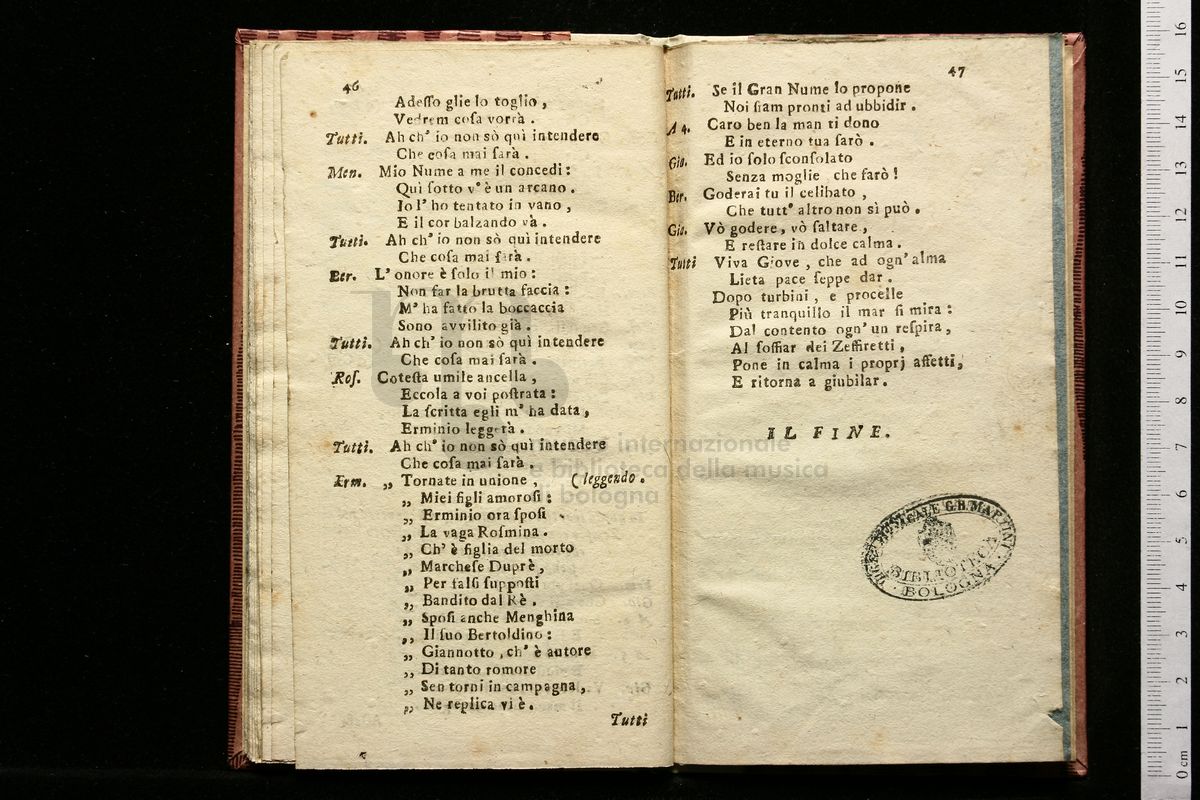 46
Adeſſo glie lo toglio ,
Vedrem coſa vorrà .
Tutti. Ah ch' io non sò quì intendere
Che coſa mai ſarà .
Men. Mio Nume a me il concedi :
Quì ſotto v' è un arcano .
Io l' ho tentato in vano ,
E il cor balzando và .
Tutti. Ah ch' io non sò quì intendere
Che coſa mai ſarà .
Ber. L' onore è ſolo il mio :
Non far la brutta faccia :
M' ha fatto la boccaccia
Sono avvilito già .
Tutti. Ah ch' io non sò quì intendere
Che coſa mai ſarà .
Roſ. Coteſta umile ancella ,
Eccola a voi poſtrata :
La ſcritta egli m' ha data ,
Erminio leggerà .
Tutti. Ah ch' io non sò quì intendere
Che coſa mai ſarà .
Erm. „ Tornate in unione , ( leggendo .
„ Miei figli amoroſi :
„ Erminio ora ſpoſi
„ La vaga Roſmina .
„ Ch' è figlia del morto
„ Marcheſe Duprè ,
„ Per falſi ſuppoſti
„ Bandito dal Rè .
„ Spoſi anche Menghina
„ Il ſuo Bertoldino :
„ Giannotto , ch' è autore
„ Di tanto romore
„ Sen torni in campagna ,
„ Ne replica vi è .
Tutti
47
Tutti. Se il Gran Nume lo propone
Noi ſiam pronti ad ubbidir .
A 4. Caro ben la man ti dono
E in eterno tua ſarò .
Gio. Ed io ſolo ſconſolato
Senza moglie che farò !
Ber. Goderai tu il celibato ,
Che tutt' altro non sì può .
Gio. Vò godere , vò ſaltare ,
E reſtare in dolce calma .
Tutti Viva Giove , che ad ogn' alma
Lieta pace ſeppe dar .
Dopo turbini , e procelle
Più tranquillo il mar ſi mira :
Dal contento ogn' un reſpira ,
Al ſoffiar dei Zeffiretti ,
Pone in calma i proprj affetti ,
E ritorna a giubilar .
IL FINE.
internazionale
e biblioteca della musica
bologna
LICEO MUSICALE G.B. MARTINI
BIBLIOTECA
BOLOGNA
0 cm 1 2 3 4 5 6 7 8 9 10 11 12 13 14 15 16